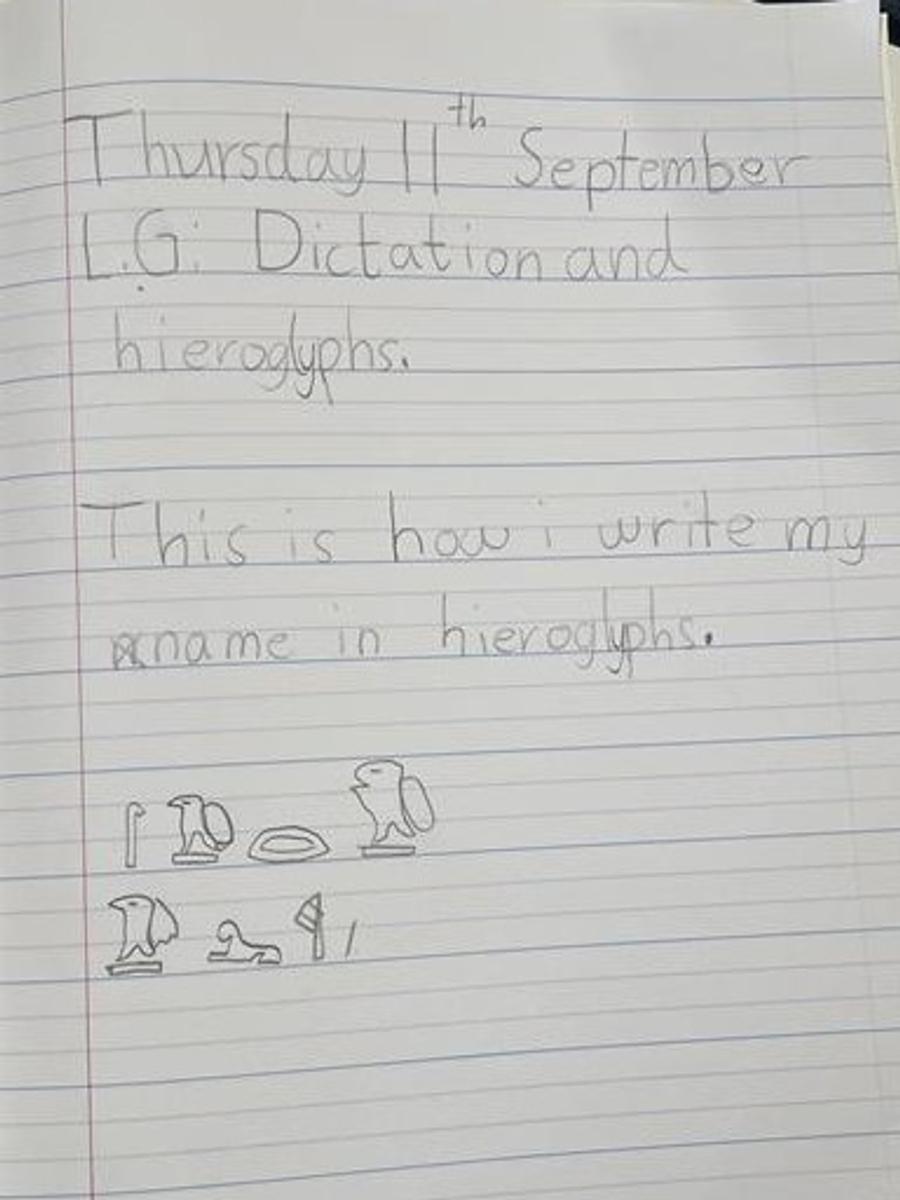 Thursday 11th September
L.G: Dictation and
hieroglyphs.
This is how i write my
name in hieroglyphs.